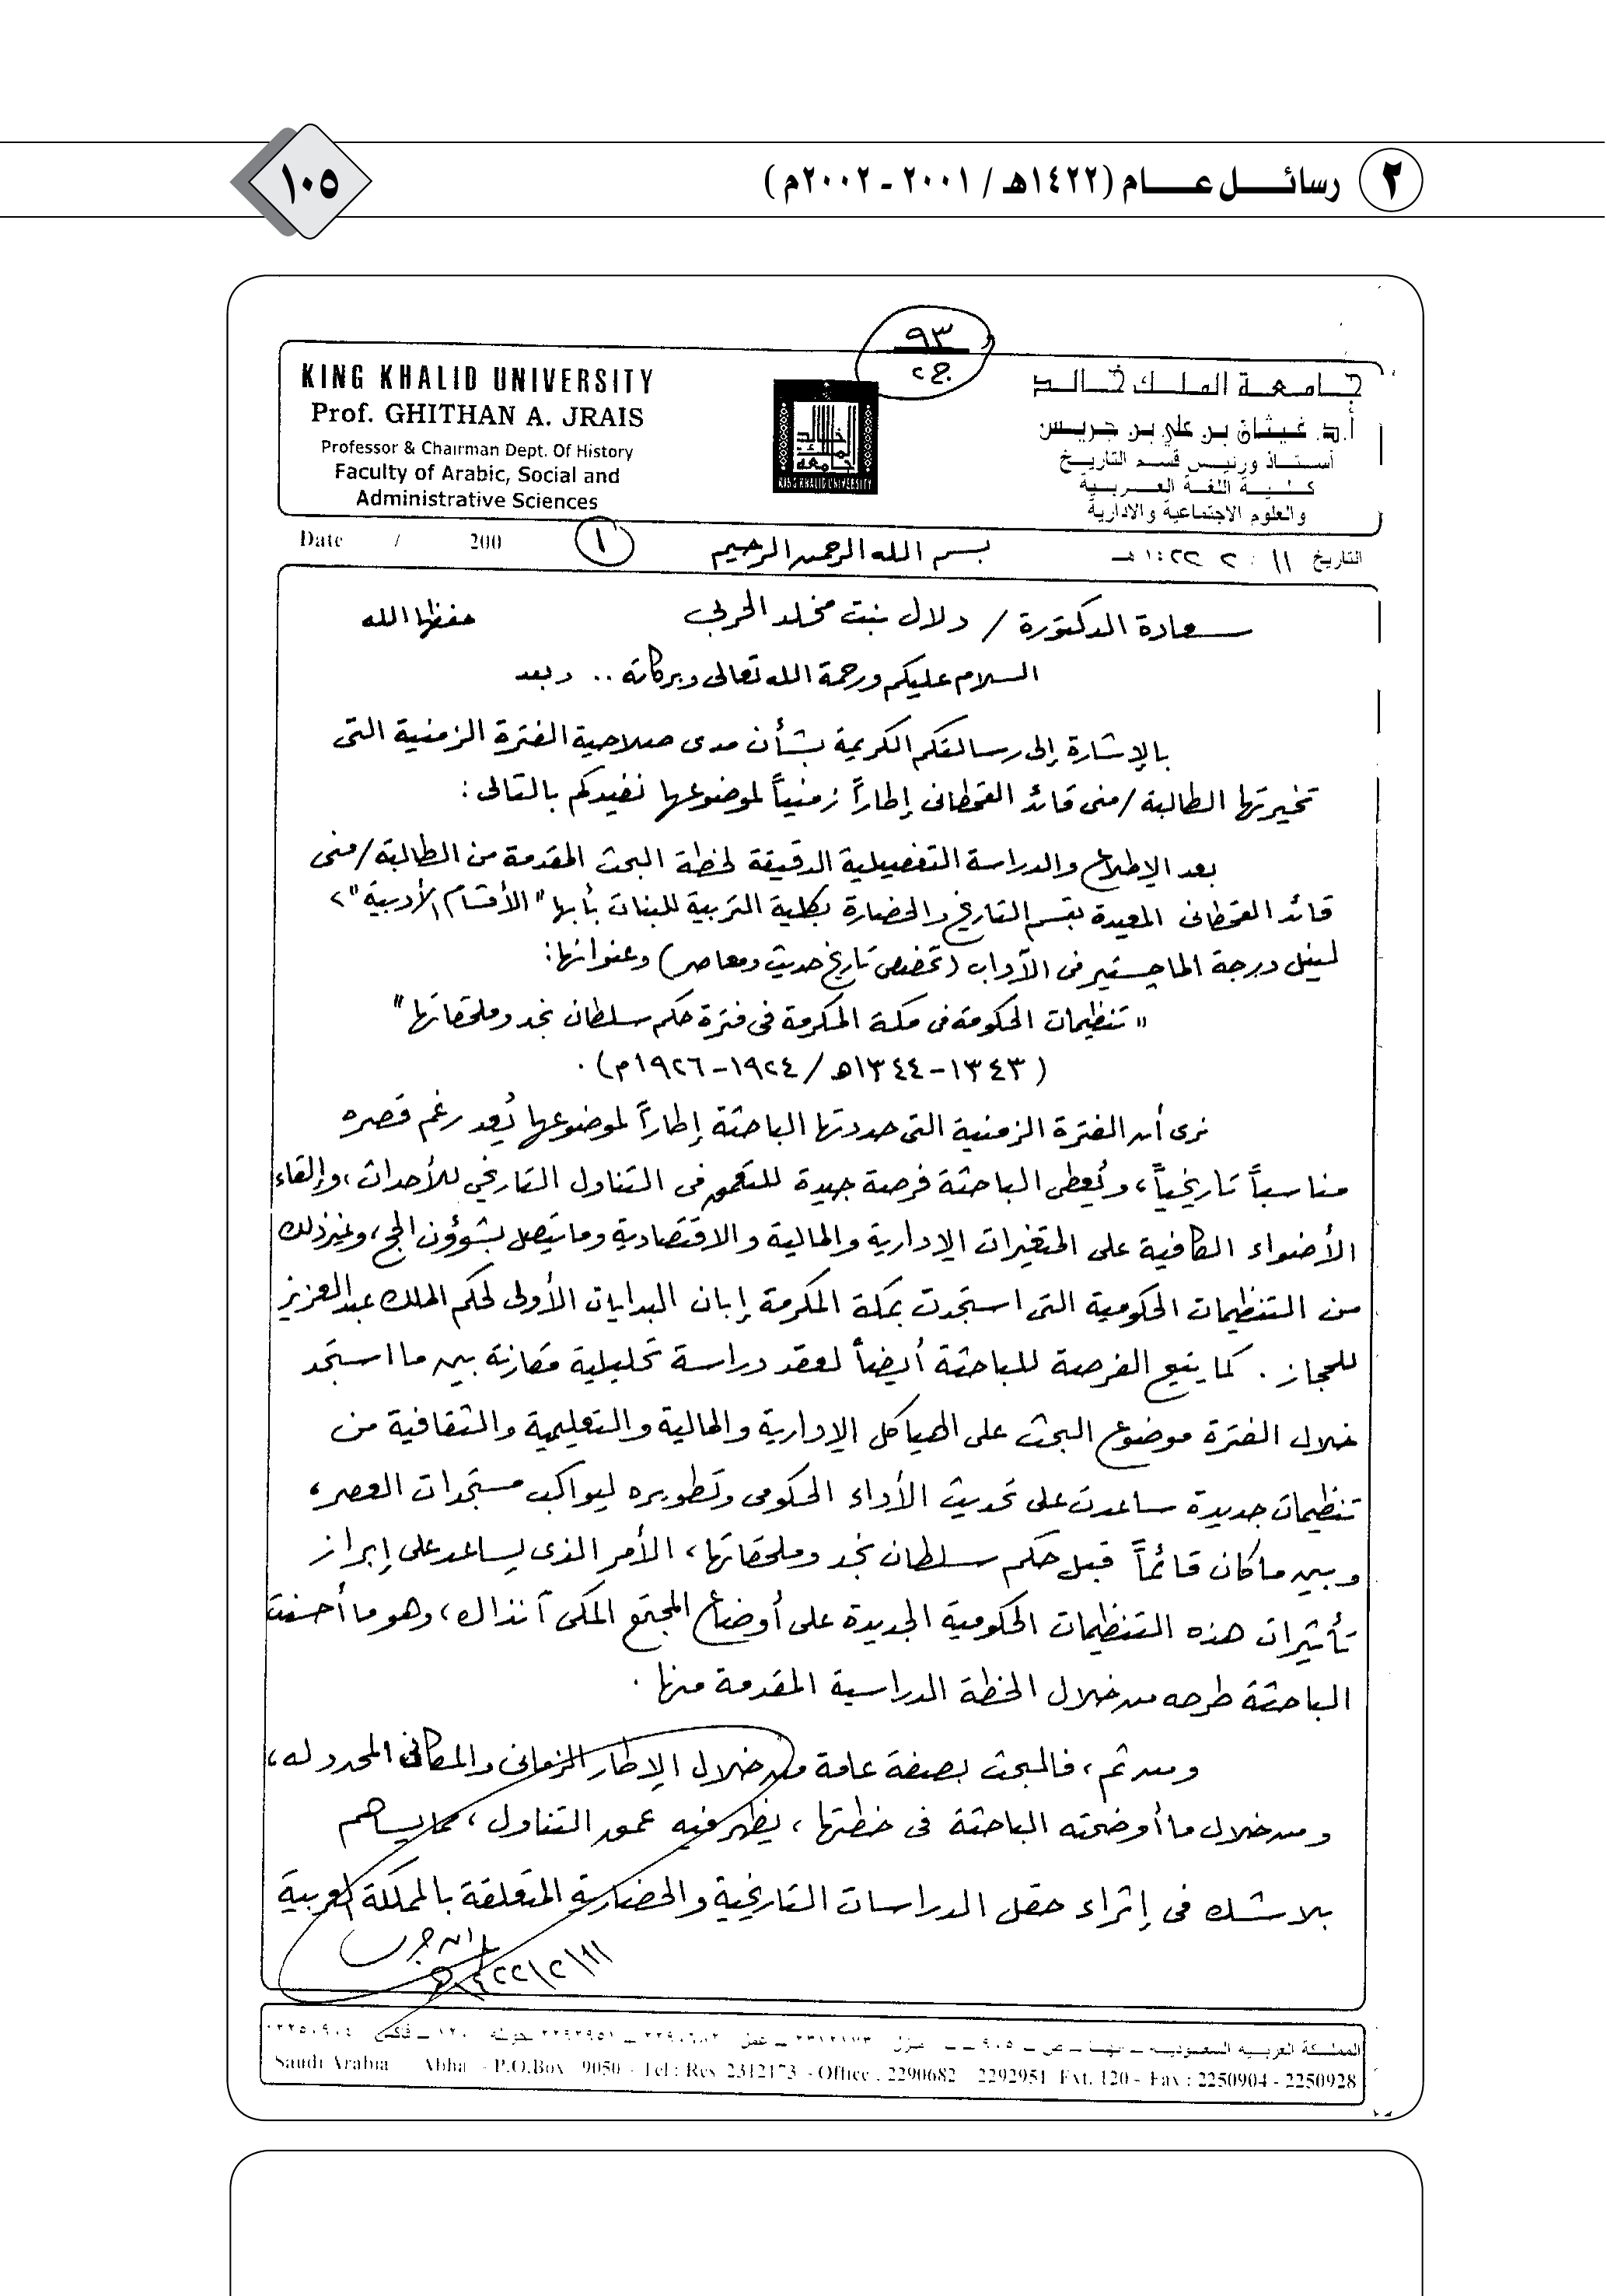 ٢ رسائل عام (١٤٢٢هـ / ٢٠٠١ - ٢٠٠٢م)
١٠٥
٩٣
ج٢
KING KHALID UNIVERSITY
Prof. GHITHAN A. JRAIS
Professor & Chairman Dept. Of History
Faculty of Arabic, Social and
Administrative Sciences
جامعة الملك خالد
KING KHALID UNIVERSITY
جامعة الملك خالد
أ.د. غيثان بن علي بن جريس
أستاذ ورئيس قسم التاريخ
كلية اللغة العربية
والعلوم الاجتماعية والادارية
Date / 200
١
بسم الله الرحمن الرحيم
التاريخ ١١ ٢ ١٤٢٢هـ
سعادة الدكتورة / دلال بنت مخلد الحربي حفظها الله
السلام عليكم ورحمة الله تعالى وبركاته .. وبعد
بالإشارة إلى رسالتكم الكريمة بشأن مدى صلاحية الفترة الزمنية التى
تخيرتها الطالبة / منى قائد القحطانى إطاراً زمنياً لموضوعها نفيدكم بالتالى :
بعد الإطلاع والدراسة التفصيلية الدقيقة لخطة البحث المقدمة من الطالبة / منى
قائد القحطانى المعيدة بقسم التاريخ والحضارة بكلية التربية للبنات بأبها "الأقسام الأدبية"،
لنيل درجة الماجستير فى الآداب (تخصص تاريخ حديث ومعاصر) وعنوانها :
"تنظيمات الحكومة فى مكة المكرمة فى فترة حكم سلطان نجد وملحقاتها"
(١٣٤٣-١٣٤٤هـ / ١٩٢٤-١٩٢٦م) .
نرى أن الفترة الزمنية التى حددتها الباحثة إطاراً لموضوعها يُعد رغم قصره
مناسباً تاريخياً، وتُعطى الباحثة فرصة جيدة للتعمق فى التناول التاريخي للأحداث، وإلقاء
الأضواء الكافية على المتغيرات الإدارية والمالية والاقتصادية وما يتصل بشؤون الحج، وغير ذلك
من التنظيمات الحكومية التى استجدت بمكة المكرمة إبان البدايات الأولى لحكم الملك عبدالعزيز
للحجاز . كما يتيح الفرصة للباحثة أيضاً لعقد دراسة تحليلية مقارنة بين ما استجد
خلال الفترة موضوع البحث على الهياكل الإدارية والمالية والتعليمية والثقافية من
تنظيمات جديدة ساعدت على تحديث الأداء الحكومى وتطويره ليواكب مستجدات العصر،
وبين ما كان قائماً قبل حكم سلطان نجد وملحقاتها، الأمر الذى يساعد على إبراز
تأثيرات هذه التنظيمات الحكومية الجديدة على أوضاع المجتمع المكى آنذاك، وهو ما أحسنت
الباحثة طرحه من خلال الخطة الدراسية المقدمة منها .
ومن ثم، فالبحث بصفة عامة من خلال الإطار الزمانى والمكانى المحدد له،
ومن خلال ما أوضحته الباحثة فى خطتها، يظهر فيه عمق التناول، مما يساهم
بلا شك فى إثراء حقل الدراسات التاريخية والحضارية المتعلقة بالمملكة العربية
ابن جريس
١١/٢/١٤٢٢هـ
Saudi Arabia Abha - P.O.Box 9050 - Tel : Res 2312173 - Office : 2290682 2292951 Ext. 120 - Fax : 2250904 - 2250928